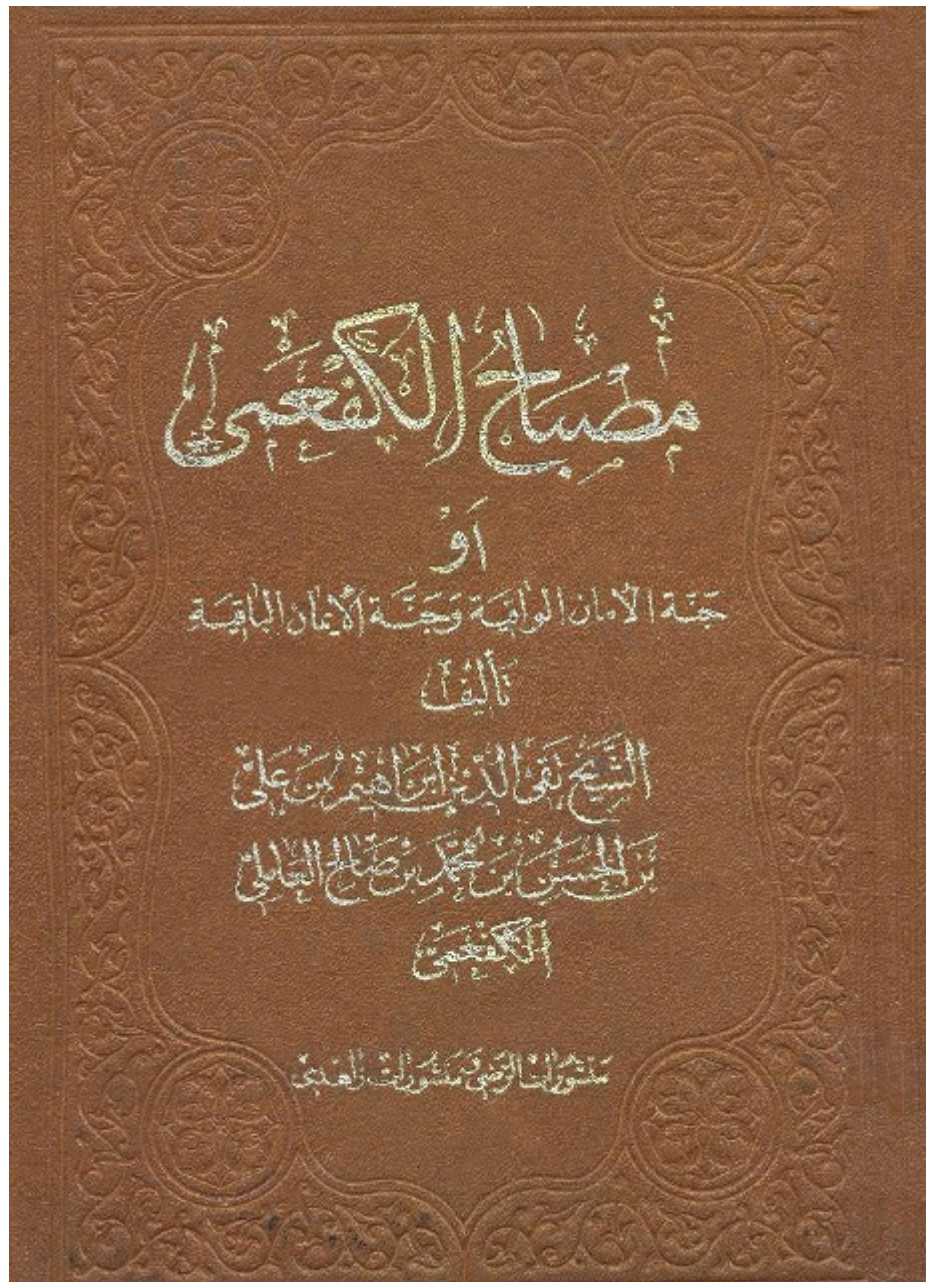 مصباح الكفعمي
أو
جنة الأمان الواقية وجنة الإيمان الباقية
تأليف
الشيخ تقي الدين ابراهيم بن علي
بن الحسن بن محمد بن صالح العاملي
الكفعمي
منشورات الرضي و منشورات زاهدي